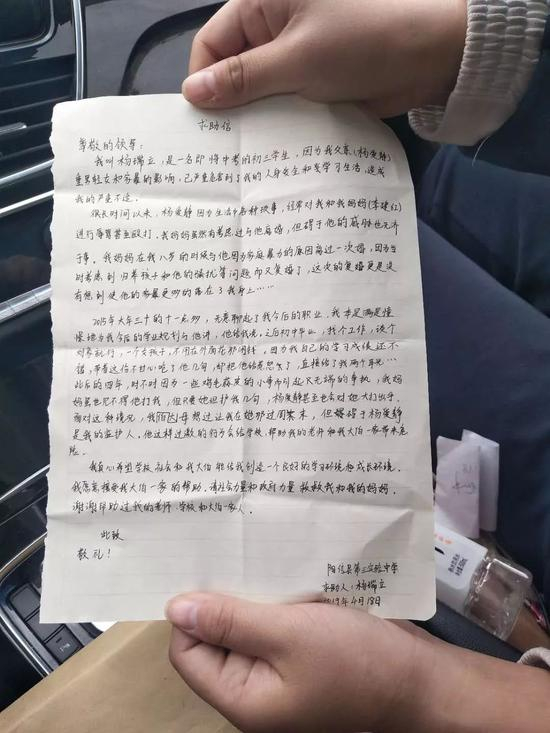 求助信
尊敬的领导:
我叫杨瑞立,是一名即将中考的初三学生,因为我父亲(杨俊静)
重男轻女和家暴的影响,已严重危害到了我的人身安全和我学习生活,造成
我的严重不适。
很长时间以来,杨俊静因为生活中各种琐事,经常对我和我妈妈(李建红)
进行辱骂甚至殴打。我妈妈虽然有考虑过与他离婚,但碍于他的威胁也无济
于事。我妈妈在我八岁的时候与他因为家庭暴力的原因离过一次婚,因为当
时考虑到归养孩子和他的骚扰等问题而又复婚了,这次的复婚更是没
有想到使他的家暴更多的落在了我身上……
2015年大年三十的十一点多,无意聊起了我今后的职业,我本是满是憧
憬地为我今后的学业规划与他讲,他给我说,之后初中毕业,找个工作,谈个
对象就行,一个女孩子,不用在外面花那闲钱,因为我自己的学习成绩还不
错,带着这份不甘心吃了他几句,却把他给惹怒了,直接给了我两个耳光…
此后的四年,时不时因为一些鸡毛蒜皮的小事而引起又无端的争执,我妈
妈虽也见不得他打我,但只要她但护我几句,杨俊静甚至也会对她大打出手。
面对这种境况,我伯母想过让我在她那过周末,但碍于杨俊静
是我的监护人,他这种过激的行为会给学校、帮助我的老师和我大伯一家带来危
险。
我真心希望学校、社会和我大伯能给我创造一个良好的学习环境和成长环境。
我愿意接受我大伯一家的帮助。请社会力量和政府力量救救我和我的妈妈。
谢谢帮助过我的老师、学校和大伯一家人。
此致
敬礼!
阳信县第三实验中学
求助人:杨瑞立
2019年4月18日